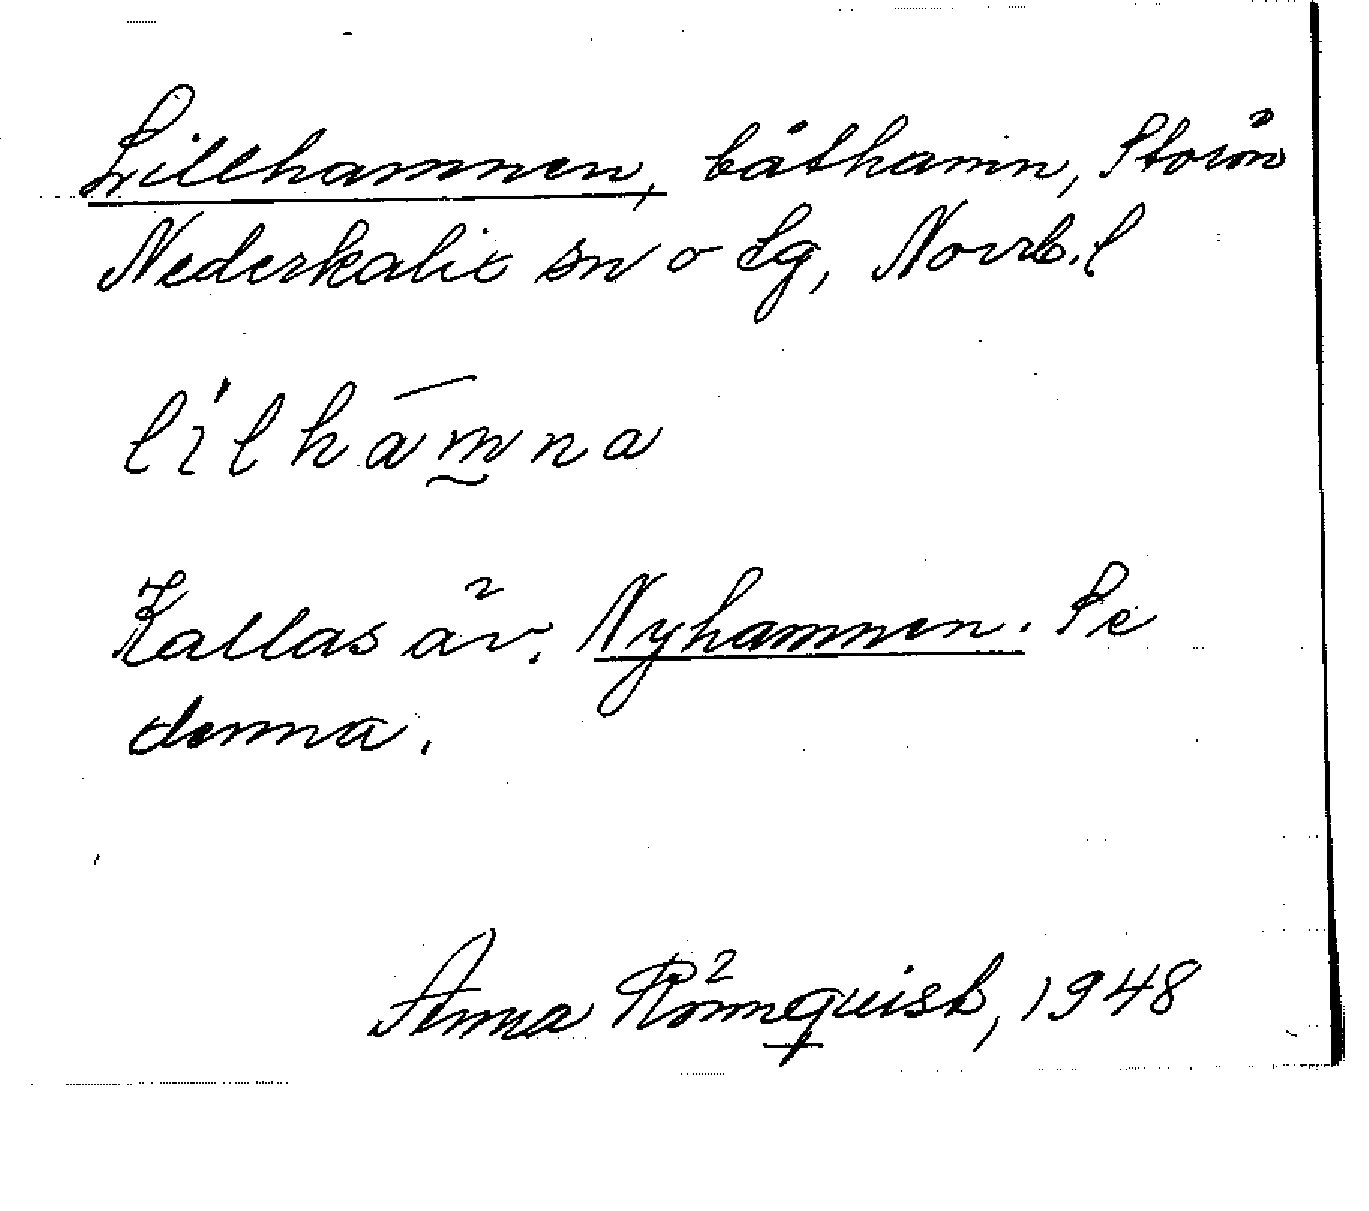 Lillhamnen, båthamn, Storön
Nederkalix sn o tg, Norrb. l
lìlhāmna
Kallas äv. Nyhamnen. Se
denna.
Anna Rönnquist, 1948